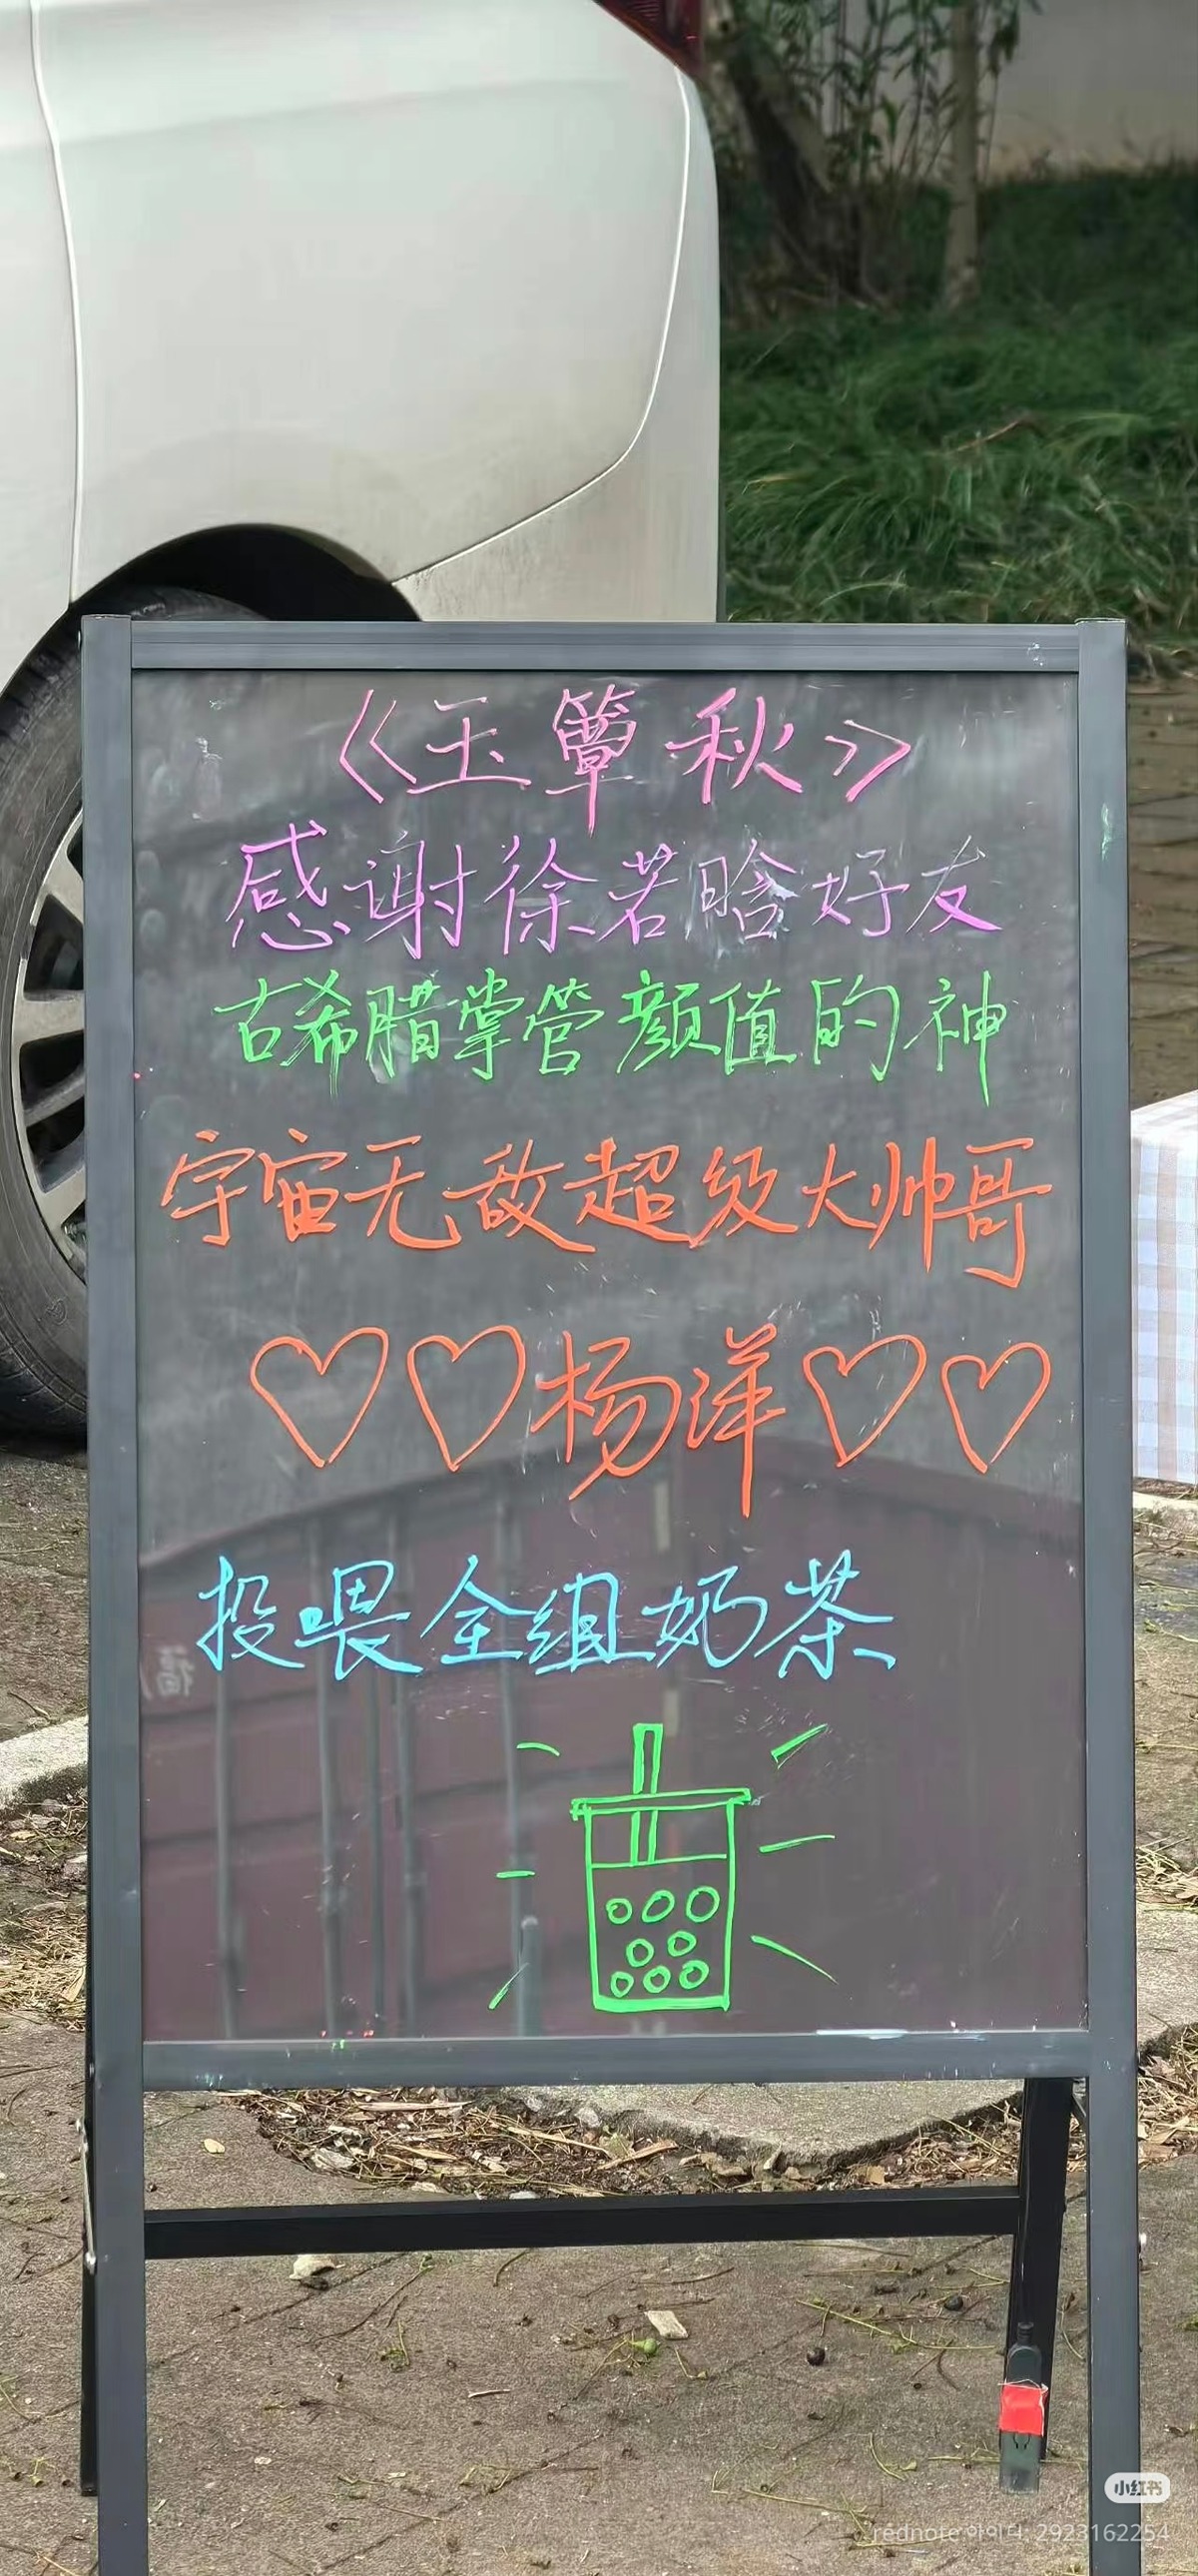 《玉簟秋》
感谢徐若晗好友
古希腊掌管颜值的神
宇宙无敌超级大帅哥
♡♡杨洋♡♡
投喂全组奶茶
福
小红书
rednote 아이디: 2923162254